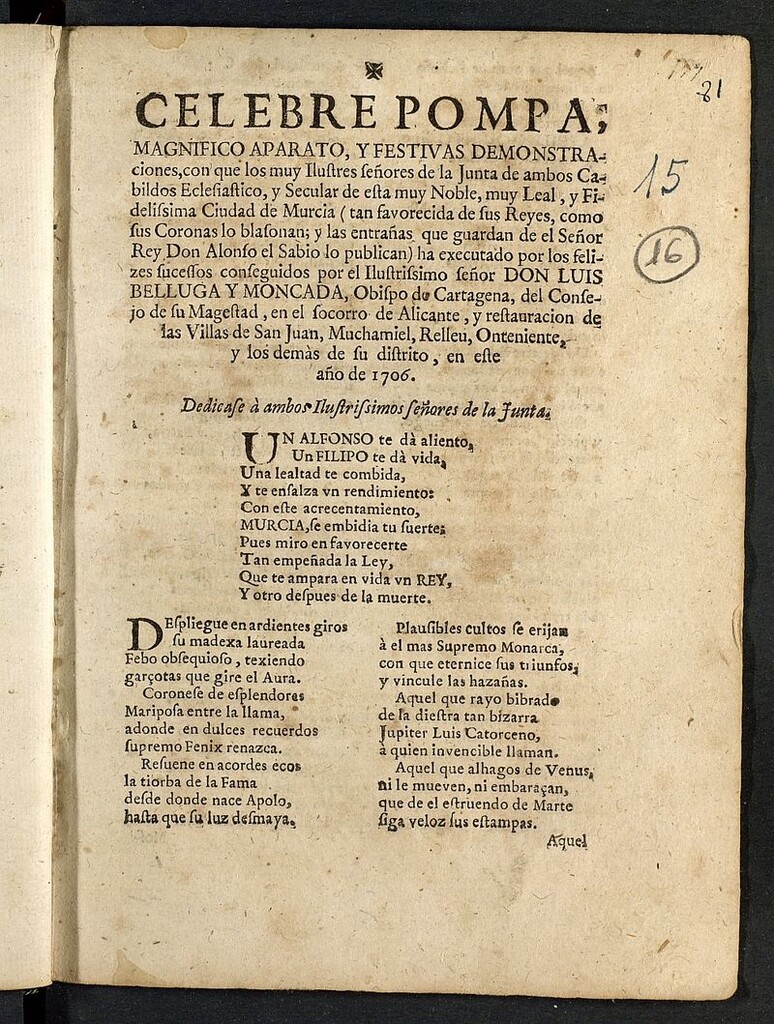 ✠
CELEBRE POMPA,
MAGNIFICO APARATO, Y FESTIVAS DEMONSTRA-
ciones,con que los muy Iluſtres ſeñores de la Junta de ambos Ca-
bildos Ecleſiaſtico, y Secular de eſta muy Noble, muy Leal, y Fi-
deliſsima Ciudad de Murcia ( tan favorecida de ſus Reyes, como
ſus Coronas lo blaſonan; y las entrañas que guardan de el Señor
Rey Don Alonſo el Sabio lo publican) ha executado por los feli-
zes ſuceſſos conſeguidos por el Iluſtriſsimo ſeñor DON LUIS
BELLUGA Y MONCADA, Obiſpo de Cartagena, del Conſe-
jo de ſu Mageſtad, en el ſocorro de Alicante, y reſtauracion de
las Villas de San Juan, Muchamiel, Relleu, Onteniente,
y los demàs de ſu diſtrito, en eſte
año de 1706.
Dedicaſe à ambos Iluſtriſsimos ſeñores de la Junta.
UN ALFONSO te dà aliento,
Un FILIPO te dà vida,
Una lealtad te combida,
Y te enſalza vn rendimiento:
Con eſte acrecentamiento,
MURCIA,ſe embidia tu ſuerte;
Pues miro en favorecerte
Tan empeñada la Ley,
Que te ampara en vida vn REY,
Y otro deſpues de la muerte.
DEſpliegue en ardientes giros
ſu madexa laureada
Febo obſequioſo, texiendo
garçotas que gire el Aura.
Coroneſe de eſplendores
Maripoſa entre la llama,
adonde en dulces recuerdos
ſupremo Fenix renazca.
Reſuene en acordes ecos
la tiorba de la Fama
deſde donde nace Apolo,
haſta que ſu luz deſmaya.
Plauſibles cultos ſe erijan
à el mas Supremo Monarca,
con que eternice ſus triunfos,
y vincule las hazañas.
Aquel que rayo bibrado
de la dieſtra tan bizarra
Jupiter Luis Catorceno,
à quien invencible llaman.
Aquel que alhagos de Venus,
ni le mueven, ni embaraçan,
que de el eſtruendo de Marte
ſiga veloz ſus eſtampas.
Aquel
81
15
16